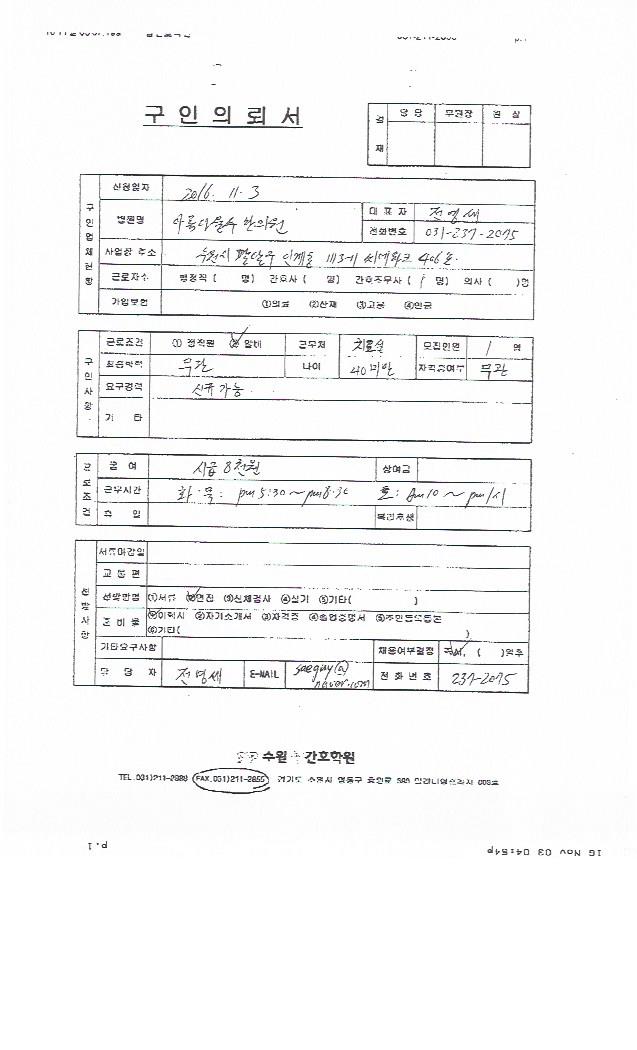 p.1
구 인 의 뢰 서
결 재 담 당 부원장 원 장
구인업체현황
신청일자 2016. 11. 3
병원명 아름다울수 한의원 대 표 자 전영세
전화번호 031-237-2075
사업장 주소 수원시 팔달구 인계동 1113-1 씨네파크 406호.
근로자수 행정직 ( 명) 간호사 ( 명) 간호조무사 ( 1 명) 의사 ( )명
가입보험 ①의료 ②산재 ③고용 ④연금
구인사항
근로조건 ① 정직원 ② 알바 근무처 치료실 모집인원 1 명
최종학력 무관 나이 40미만 자격증여부 무관
요구경력 신규 가능
기 타
근로조건
급 여 시급 8천원 상여금
근무시간 화·목: pm 5:30 ~ pm 8:30 토: am 10 ~ pm 1시
휴 일 복리후생
전형사항
서류마감일
교 통 편
선발방법 ①서류 ②면접 ③신체검사 ④실기 ⑤기타( )
준 비 물 ①이력서 ②자기소개서 ③자격증 ④졸업증명서 ⑤주민등록등본
⑥기타( )
기타요구사항 채용여부결정 즉시, ( )일후
담 당 자 전영세 E-MAIL saeguy@
naver.com 전 화 번 호 237-2075
수원 간호학원
TEL.031)211-2888 FAX.031)211-2855
p.1
16 Nov 03 04:54p